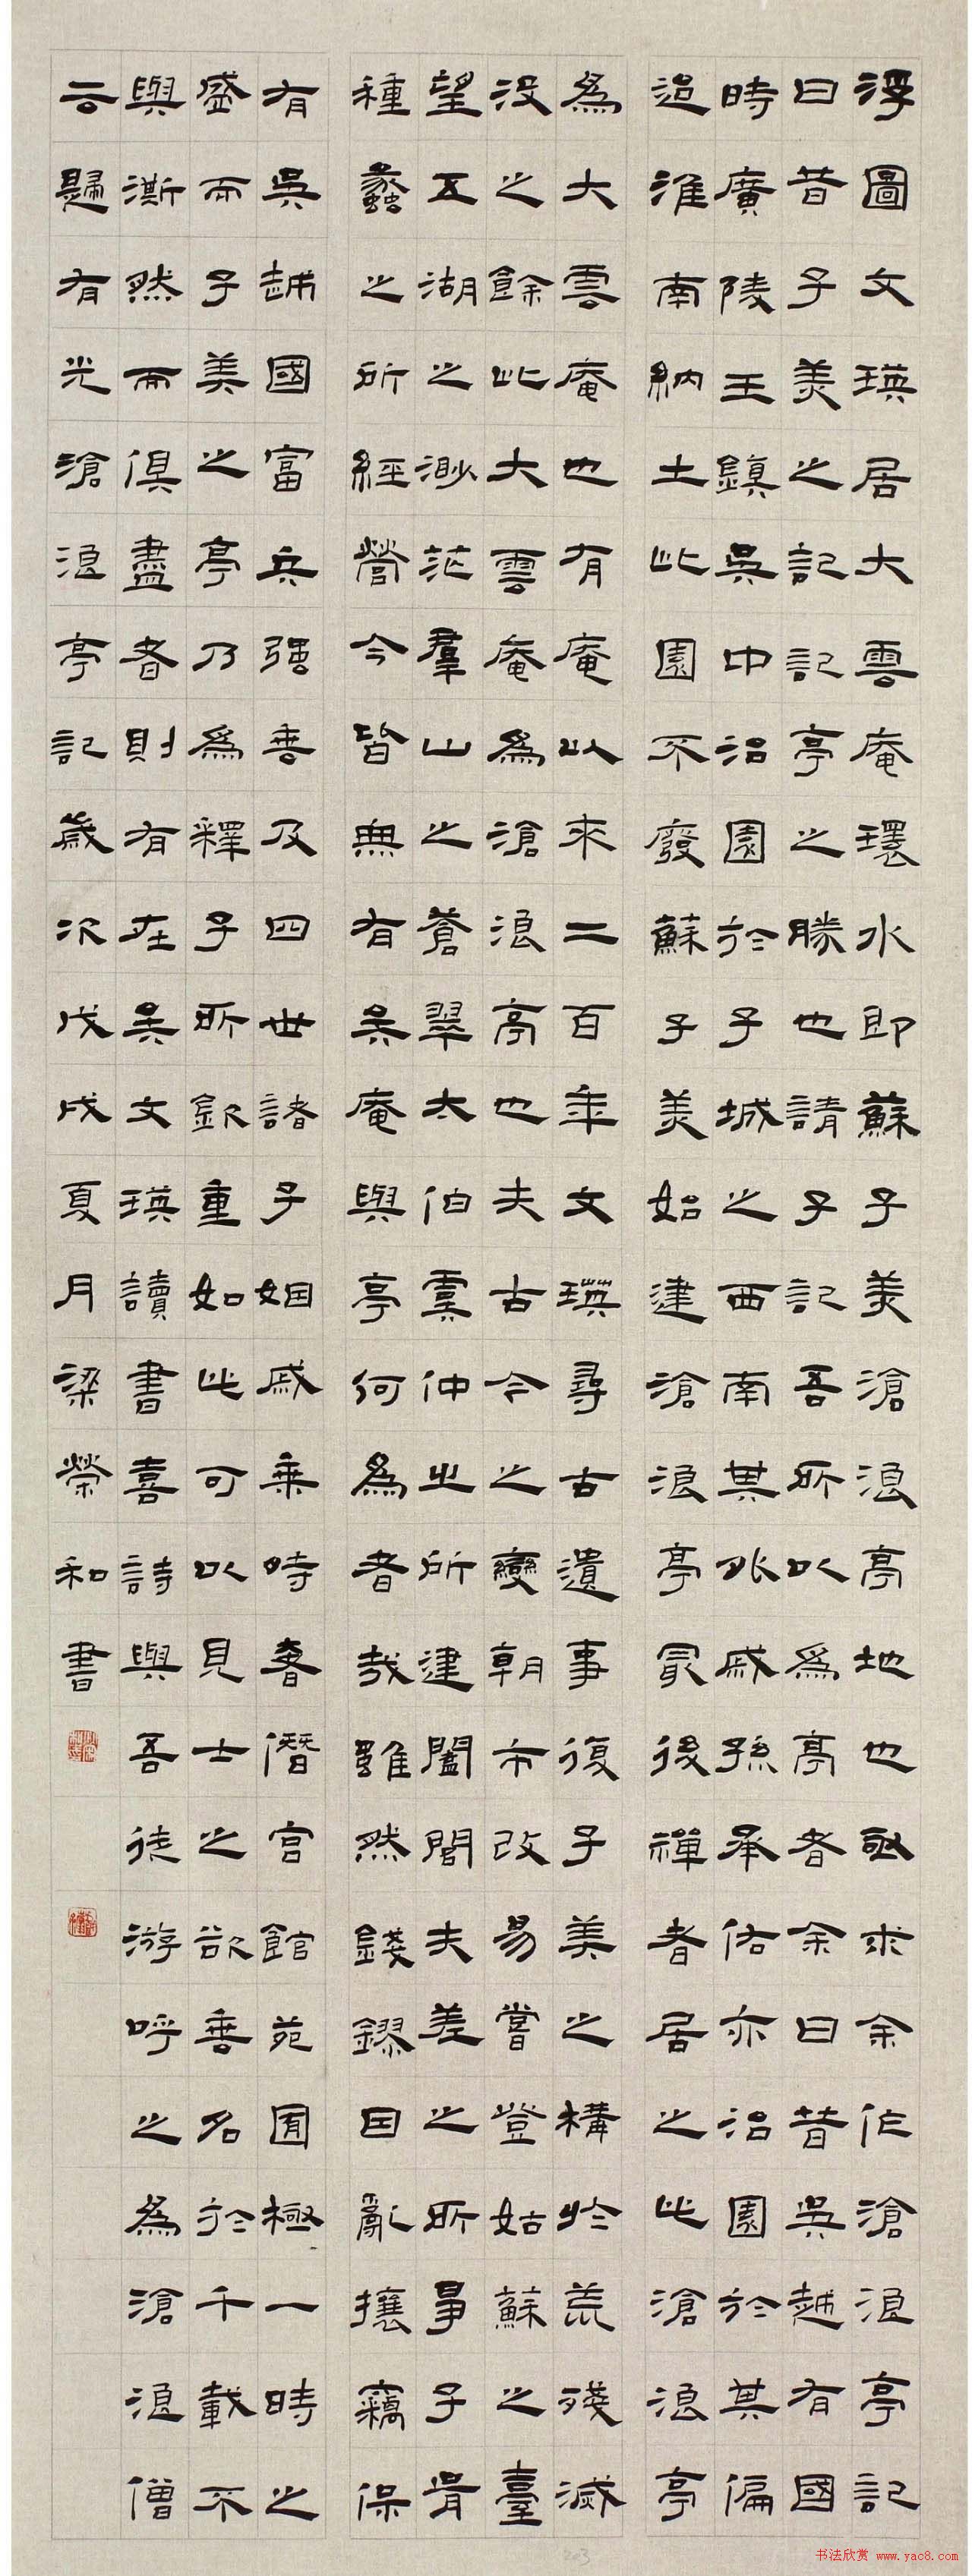 浮圖文瑛居大雲庵環水即蘇子美滄浪亭地也亟求余作滄浪亭記
曰昔子美之記記亭之勝也請子記吾所以為亭者余曰昔吳越有國
時廣陵王鎮吳中治園於子城之西南其外戚孫承佑亦治園於其偏
迨淮南納土此園不廢蘇子美始建滄浪亭最後禪者居之此滄浪亭
為大雲庵也有庵以來二百年文瑛尋古遺事復子美之構於荒殘滅
没之餘此大雲庵為滄浪亭也夫古今之變朝市改易嘗登姑蘇之臺
望五湖之渺茫羣山之蒼翠太伯虞仲之所建闔閭夫差之所爭子胥
種蠡之所經營今皆無有矣庵與亭何為者哉雖然錢鏐因亂攘竊保
有吳越國富兵强垂及四世諸子姻戚乘時奢僭宮館苑囿極一時之
盛而子美之亭乃為釋子所欽重如此可以見士之欲垂名於千載不
與澌然而俱盡者則有在矣文瑛讀書喜詩與吾徒游呼之為滄浪僧
云歸有光滄浪亭記歲次戊戌夏月梁榮和書
书法欣赏 www.yac8.com